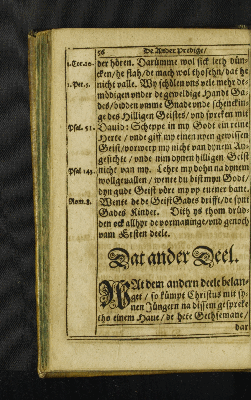 56 De Ander Predige/
1.Cor.10. der hören. Darümme wol sick leth dün-
cken/he stah/de mach wol thosehn/dat he
1.Pet.5. nicht valle. Wy schölen vns vele mehr de-
mödigen vnder de geweldige Handt Ga-
des/bidden vmme Gnade vnde schencklin-
ge des Hilligen Geistes/vnd spreken mit
Psal.51. Dauid: Scheppe in my Godt ein reine
Herte/vnde giff my einen nyen gewissen
Geist/vorwerp my nicht van dynem An-
gesichte/vnde nim dynen hilligen Geist
Psal.143. nicht van my. Lehre my dohn na dynem
wolgeuallen/wente du bist myn Godt/
dyn gude Geist vöre my vp euener bane.
Rom.8. Wente de de Geist Gades drifft/de synt
Gades Kinder. Dith ys thom drüd-
den ock allhyr de vormaninge/vnd genoch
vam Ersten deele.
Dat ander Deel.
WAt dem andern deele belan-
get/so kümpt Christus mit sy-
nen Jüngern na dissem gespreke
tho einem Haue/de hete Gethsemane/
dar